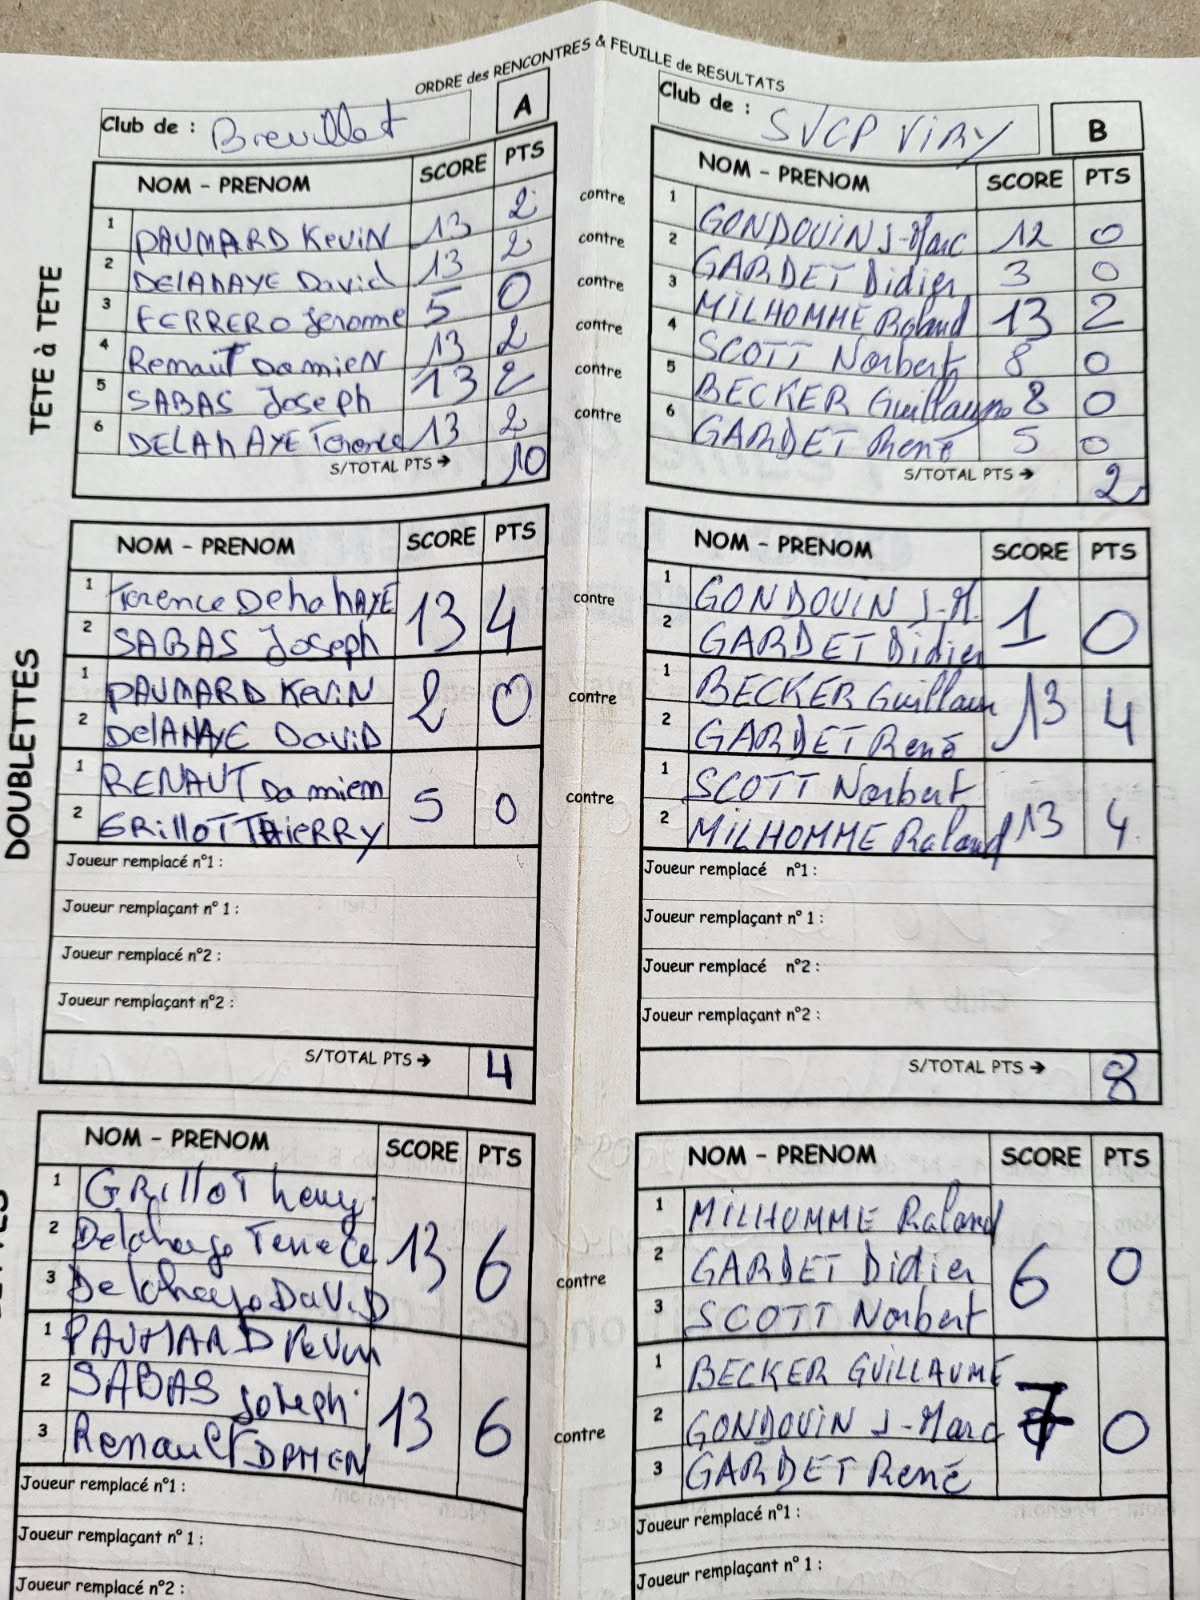 ORDRE des RENCONTRES & FEUILLE de RESULTATS
Club de : Breuillet A
Club de : SVCP VIRY B
TETE à TETE
NOM - PRENOM SCORE PTS
1 PAUMARD KeviN 13 2
2 DELAHAYE David 13 2
3 FERRERO Jerome 5 0
4 Renaut DamieN 13 2
5 SABAS Joseph 13 2
6 DELAHAYE Terence 13 2
S/TOTAL PTS → 10
contre
contre
contre
contre
contre
contre
NOM - PRENOM SCORE PTS
1 GONDOUIN J-Marc 12 0
2 GARDET Didier 3 0
3 MILHOMME Roland 13 2
4 SCOTT Norbert 8 0
5 BECKER Guillaume 8 0
6 GARDET René 5 0
S/TOTAL PTS → 2
DOUBLETTES
NOM - PRENOM SCORE PTS
1 Terence DelahAYE 13 4
2 SABAS Joseph
1 PAUMARD KeviN 2 0
2 DelAHAYE DaviD
1 RENAUT Damiem 5 0
2 GRilloT THiERRY
Joueur remplacé n°1 :
Joueur remplaçant n° 1 :
Joueur remplacé n°2 :
Joueur remplaçant n°2 :
S/TOTAL PTS → 4
contre
contre
contre
NOM - PRENOM SCORE PTS
1 GONDOUIN J-M. 1 0
2 GARDET Didier
1 BECKER Guillaum 13 4
2 GARDET René
1 SCOTT Norbert 13 4
2 MILHOMME Roland
Joueur remplacé n°1 :
Joueur remplaçant n° 1 :
Joueur remplacé n°2 :
Joueur remplaçant n°2 :
S/TOTAL PTS → 8
NOM - PRENOM SCORE PTS
1 GRilloT 13 6
2 Delahaye Terrece
3 Delahaye DaViD
1 PAUMARD Kevin 13 6
2 SABAS Joseph
3 Renault DAMIEN
Joueur remplacé n°1 :
Joueur remplaçant n° 1 :
Joueur remplacé n°2 :
contre
contre
NOM - PRENOM SCORE PTS
1 MILHOMME Roland 6 0
2 GARDET Didier
3 SCOTT Norbert
1 BECKER GUILLAUME 7 0
2 GONDOUIN J-Marc
3 GARDET René
Joueur remplacé n°1 :
Joueur remplaçant n° 1 :